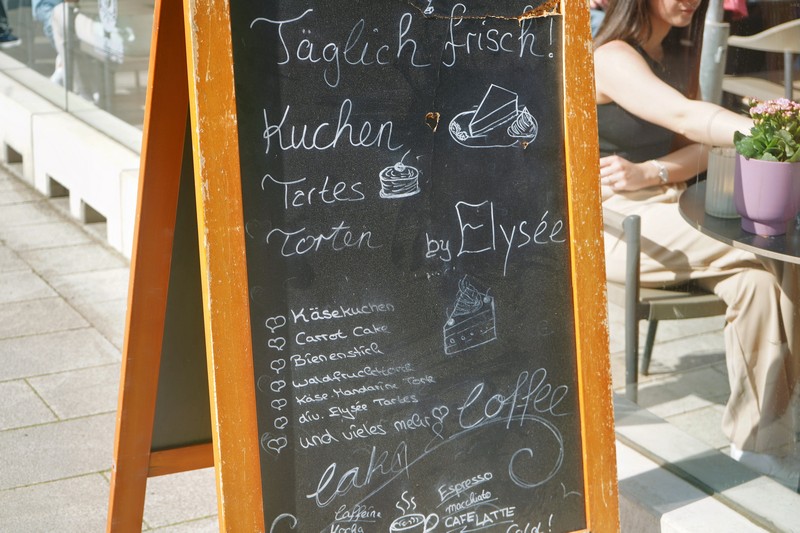 Täglich frisch!
Kuchen
Tartes
Torten by Elysée
Käsekuchen
Carrot Cake
Bienenstich
Waldfruchttorte
Käse-Mandarine Torte
div. Elysée Tartes
und vieles mehr
Coffee
Cake
Espresso
macchiato
CAFE LATTE